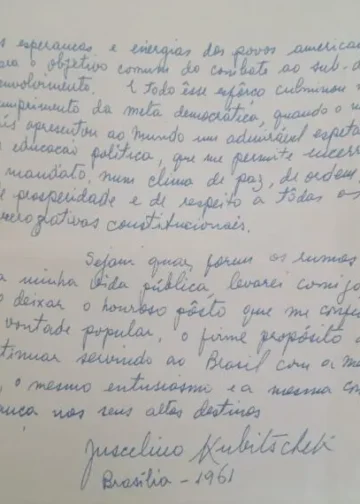 s esperanças e energias dos povos american
ra o objetivo comum do combate ao sub-d
envolvimento. E todo êsse esfôrço culminou
umprimento da meta democrática, quando o
ís apresentou ao mundo um admirável espetá
educação política, que me permite encerr
mandato, num clima de paz, de ordem,
e prosperidade e de respeito a tôdas as
rerrogativas constitucionais.
Sejam quais forem os rumos
a minha vida pública levarei comigo
o deixar o honroso pôsto que me confi
vontade popular, o firme propósito
tinuar servindo ao Brasil com a m
, o mesmo entusiasmo e a mesma con
ança nos seus altos destinos
Juscelino Kubitschek
Brasília - 1961